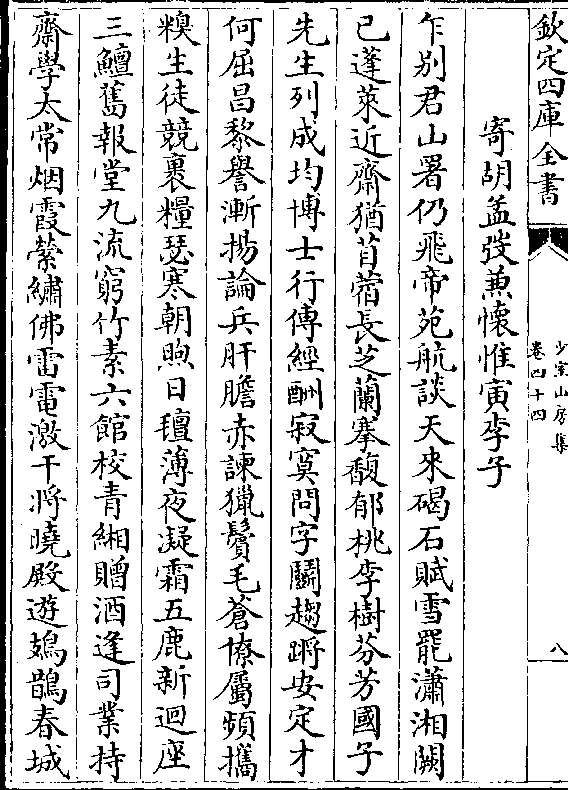 欽定四庫全書
少室山房集
卷四十四
八
寄胡孟弢兼懷惟寅李子
乍别君山署仍飛帝苑航談天來碣石賦雪罷瀟湘闕
已蓬萊近齋猶苜蓿長芝蘭搴馥郁桃李樹芬芳國子
先生列成均博士行傳經酬寂寞問字鬭趨蹌安定才
何屈昌黎譽漸揚論兵肝膽赤諫獵鬢毛蒼僚屬頻攜
糗生徒競裹糧瑟寒朝煦日氊薄夜凝霜五鹿新迴座
三鱣舊報堂九流窮竹素六館校青緗贈酒逢司業持
齋學太常烟霞縈繡佛雷電激干將曉殿遊鳷鵲春城